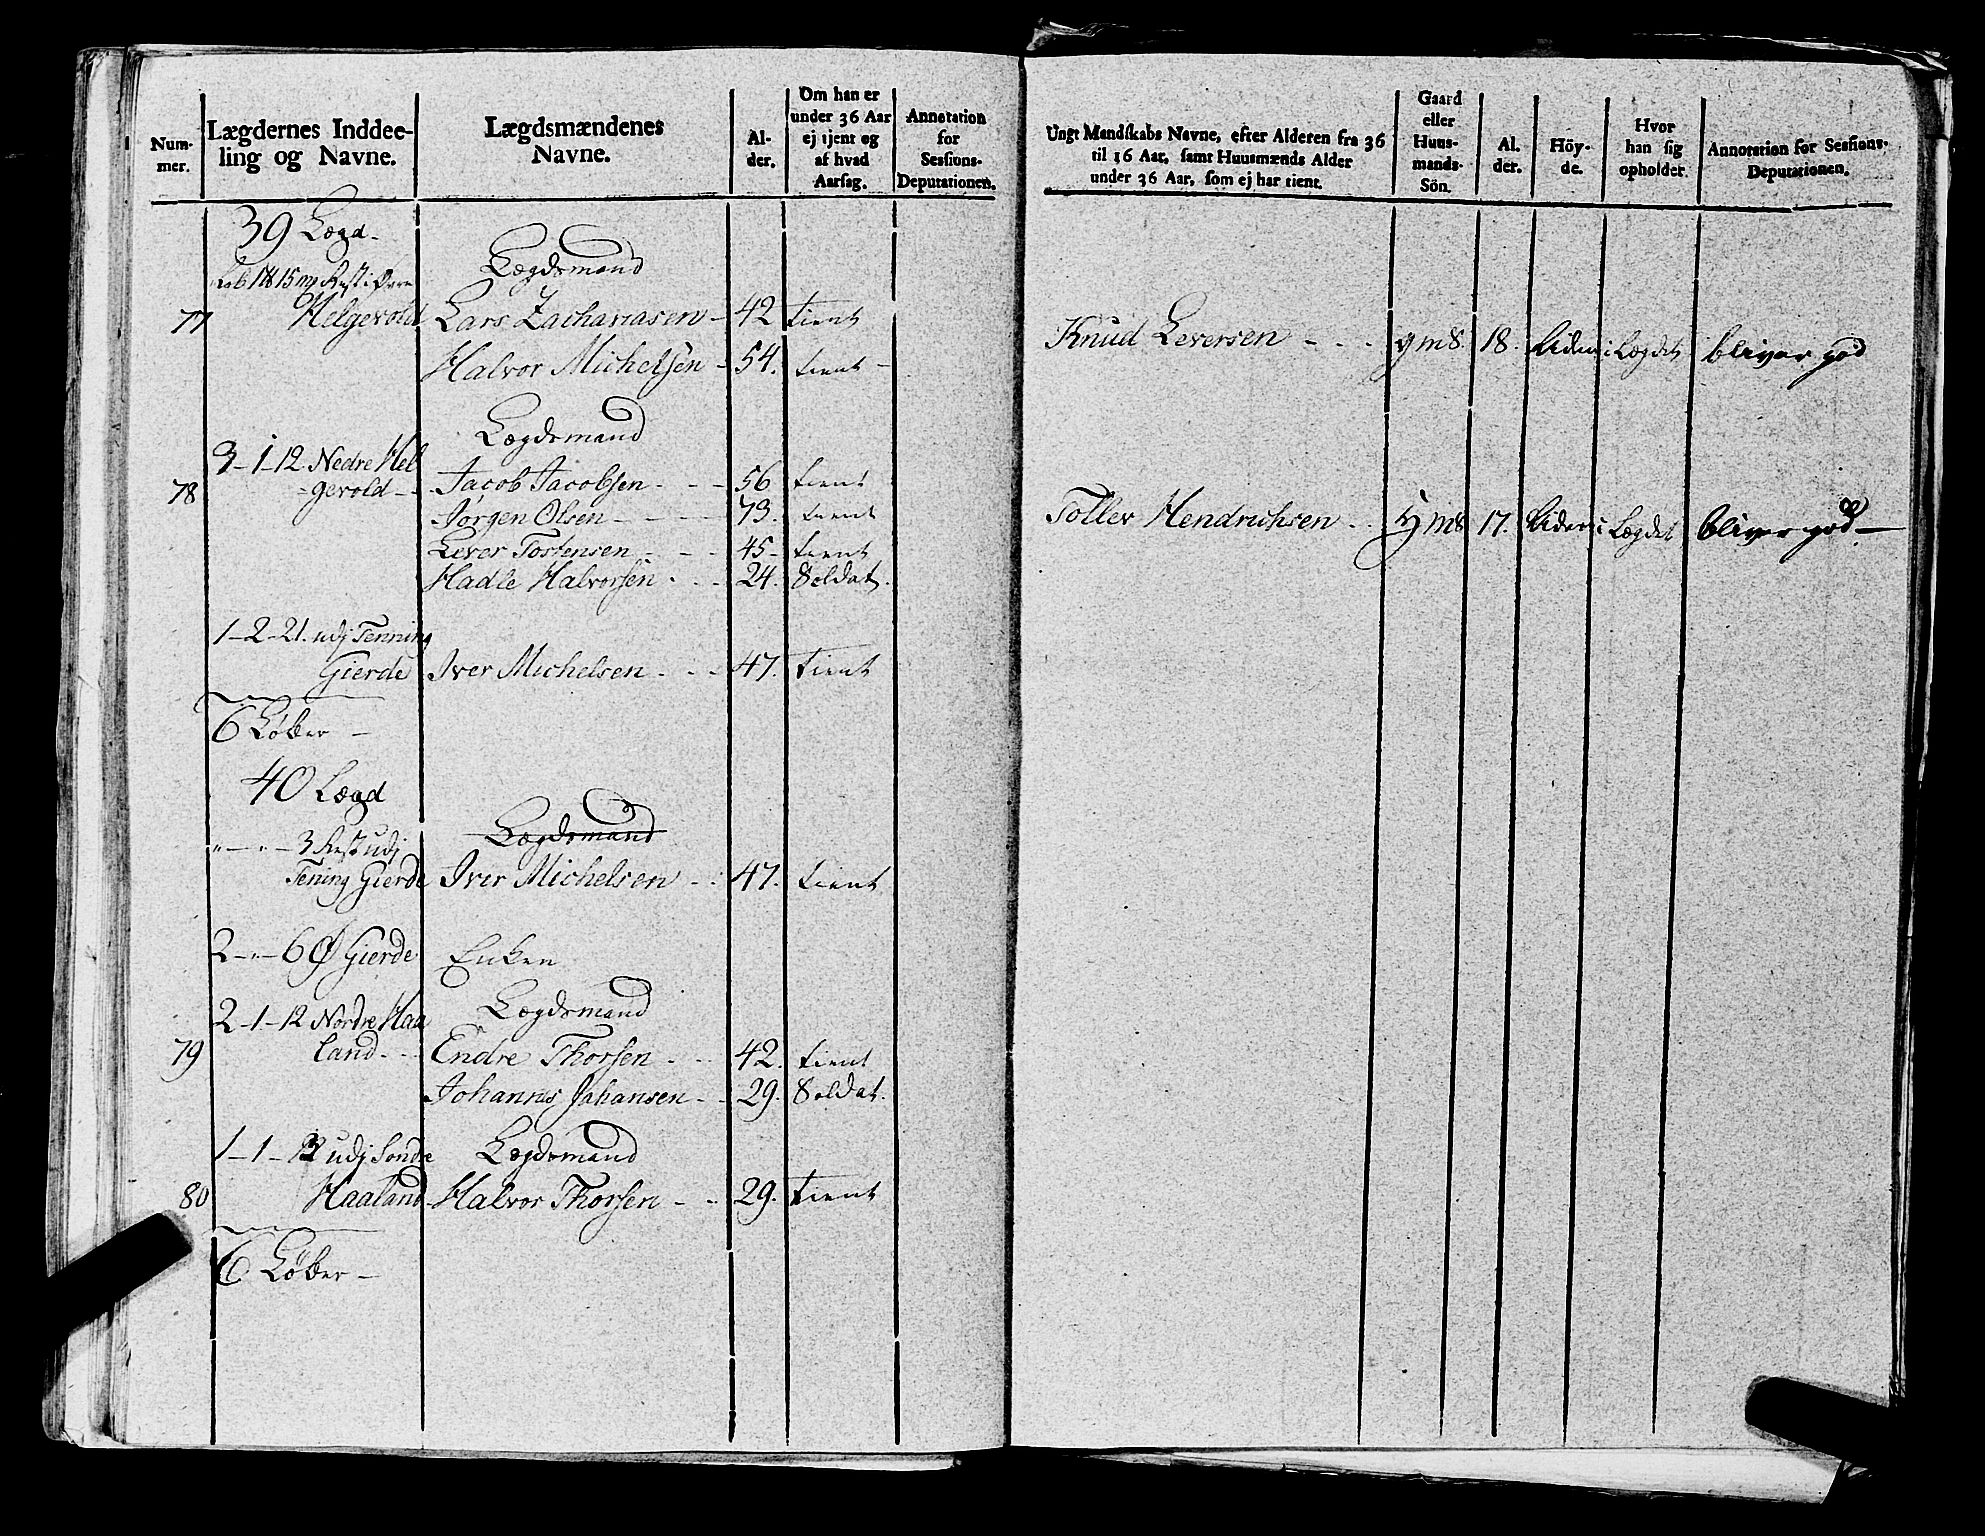 Num-
mer.
Lægdernes Inddee-
ling og Navne.
Lægdsmændenes
Navne.
Al-
der.
Om han er
under 36 Aar
ej tjent og
af hvad
Aarsag.
Annotation
for
Sessions-
Deputationen.
39 Lægd.
Rest i Øvre
Lægdsmand
77 Helgevold Lars Zachariasen - 42 tient
Halvor Michelsen - 54. tient -
Lægdsmand
3-1-12 Nedre Hel
78 -gevold - - Jacob Jacobsen - - - 56 tient
Jørgen Olsen - - - - 73. tient
Lever Tostensen - - - 45- tient
Hadle Halvorsen - - - 24. Soldat.
1-2-21. udj Tenning
Gierde Iver Michelsen - - - 47. tient
6 Løber -
40 Lægd
" - " - 3 Rest udj Lægdsmand
Tening Gierde Iver Michelsen - - 47. tient
2-"-6 Ø Gierde Enken
2-1-12 Nordre Haa Lægdsmand
79 land - - Endre Thorsen - - - 42. tient
Johannes Johansen - - 29. Soldat.
1-1- udj Søndre Lægdsmand
80 Haaland Halvor Thorsen - - - 29. tient
6 Løber -
Ungt Mandskabs Navne, efter Alderen fra 36
til 16 Aar, samt Huusmænds Alder
under 36 Aar, som ej har tient.
Gaard
eller
Huus-
mands-
Sön.
Al.
der.
Höy-
de.
Hvor
han sig
opholder.
Annotation for Sessions-
Deputationen.
Knud Leversen - - - gms 18. Liden i Lægdet bliver god
Toller Hendrichsen - - gms 17. Liden i Lægdet bliver god -